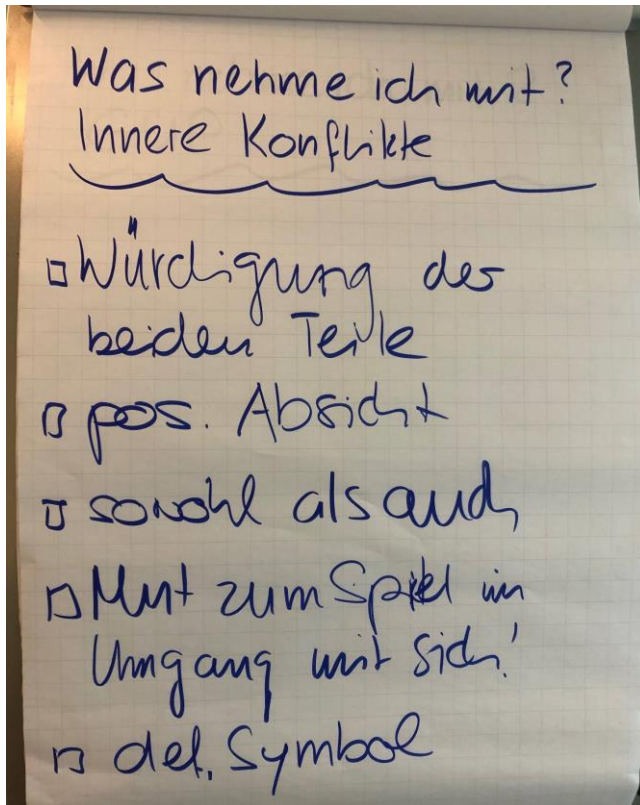 Was nehme ich mit?
Innere Konflikte
Würdigung der
beiden Teile
pos. Absicht
sowohl als auch
Mut zum Spiel im
Umgang mit sich!
def. Symbol